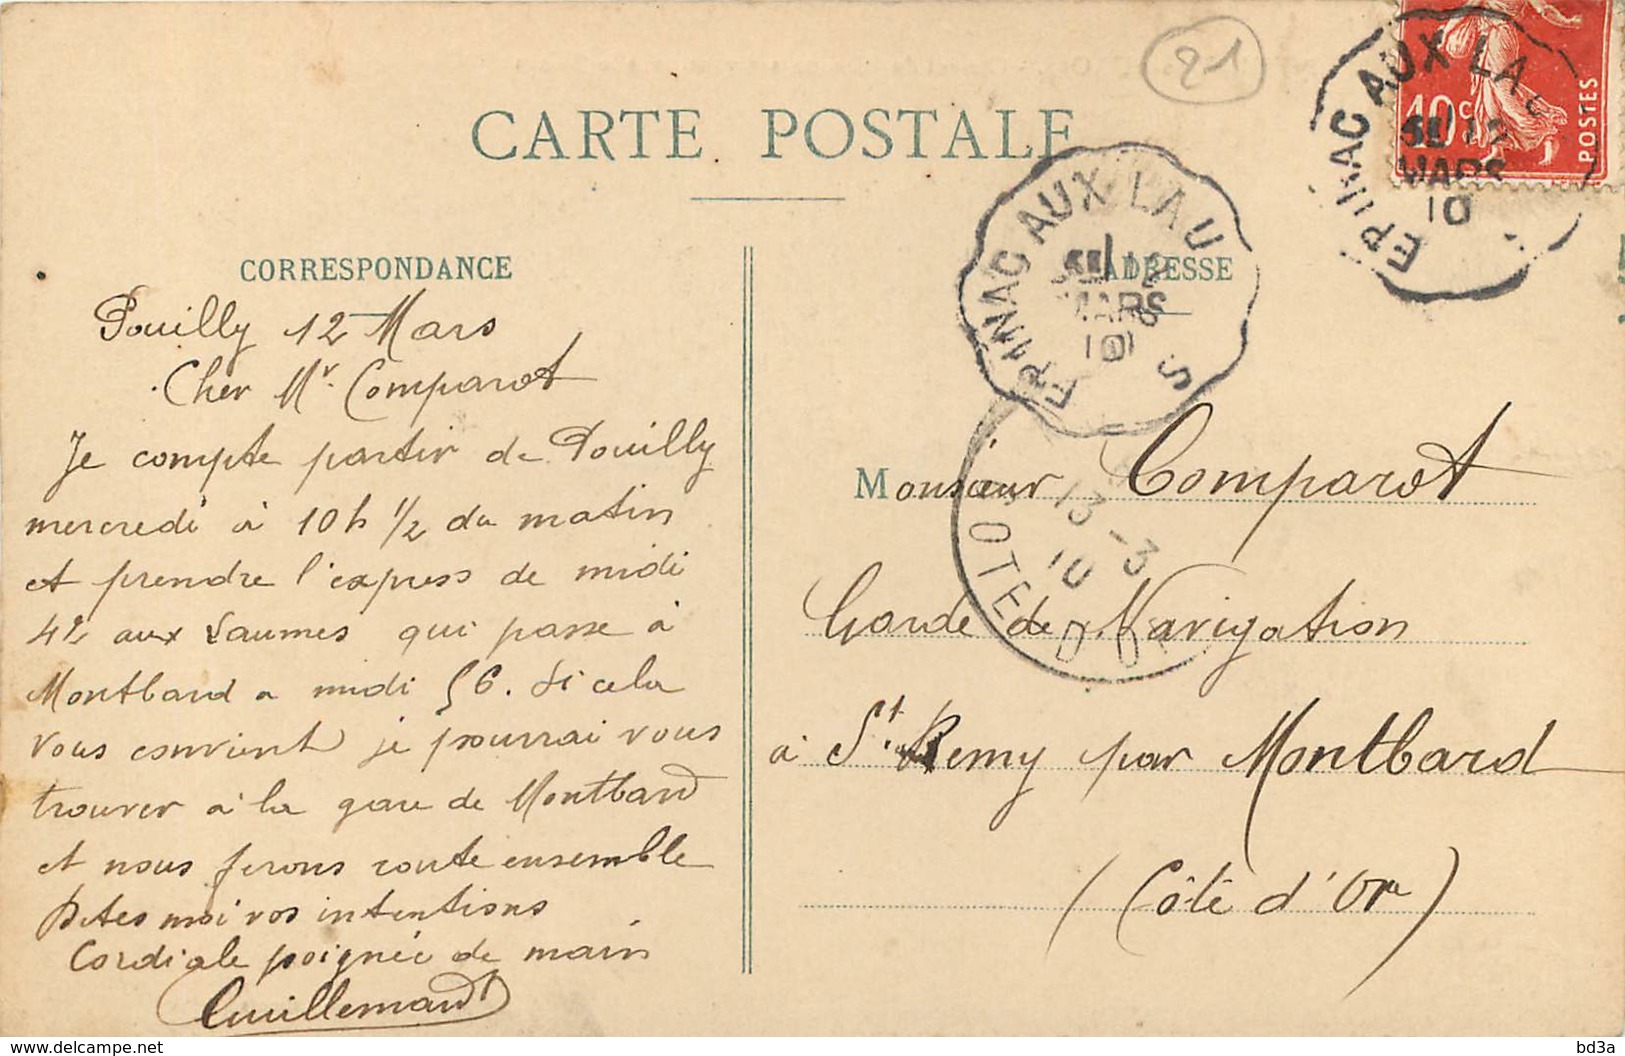 21
CARTE POSTALE
EPINAC AUX LAU S
12
MARS
10
EPINAC AUX LA
12
MARS
10
10c
POSTES
CORRESPONDANCE
Pouilly 12 Mars
Cher Mr. Comparot
Je compte partir de Pouilly
mercredi à 10h 1/2 du matin
et prendre l'express de midi
42 aux Laumes qui passe à
Montbard à midi 56. Si cela
vous convient je pourrai vous
trouver à la gare de Montbard
et nous ferons route ensemble
Dites moi vos intentions
Cordiale poignée de main
Guillemard
ADRESSE
Monsieur Comparot
Garde de Navigation
à St. Remy par Montbard
(Côte d'Or)
13 - 3
10
COTE D'OR
bd3a
www.delcampe.net